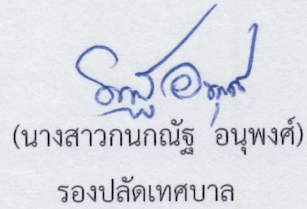 (นางสาวกนกณัฐ อนุพงศ์)
รองปลัดเทศบาล